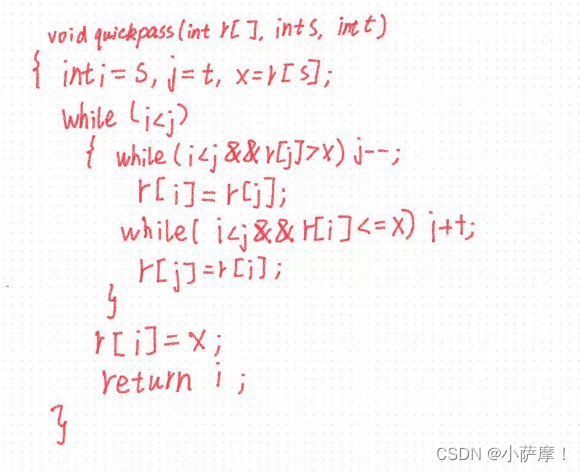 void quickpass(int r[], int s, int t)
{ int i=s, j=t, x=r[s];
while (i<j)
{ while(i<j&&r[j]>x) j--;
r[i]=r[j];
while( i<j&&r[i]<=x) i++;
r[j]=r[i];
}
r[i]=x;
return i;
}
CSDN @小萨摩！